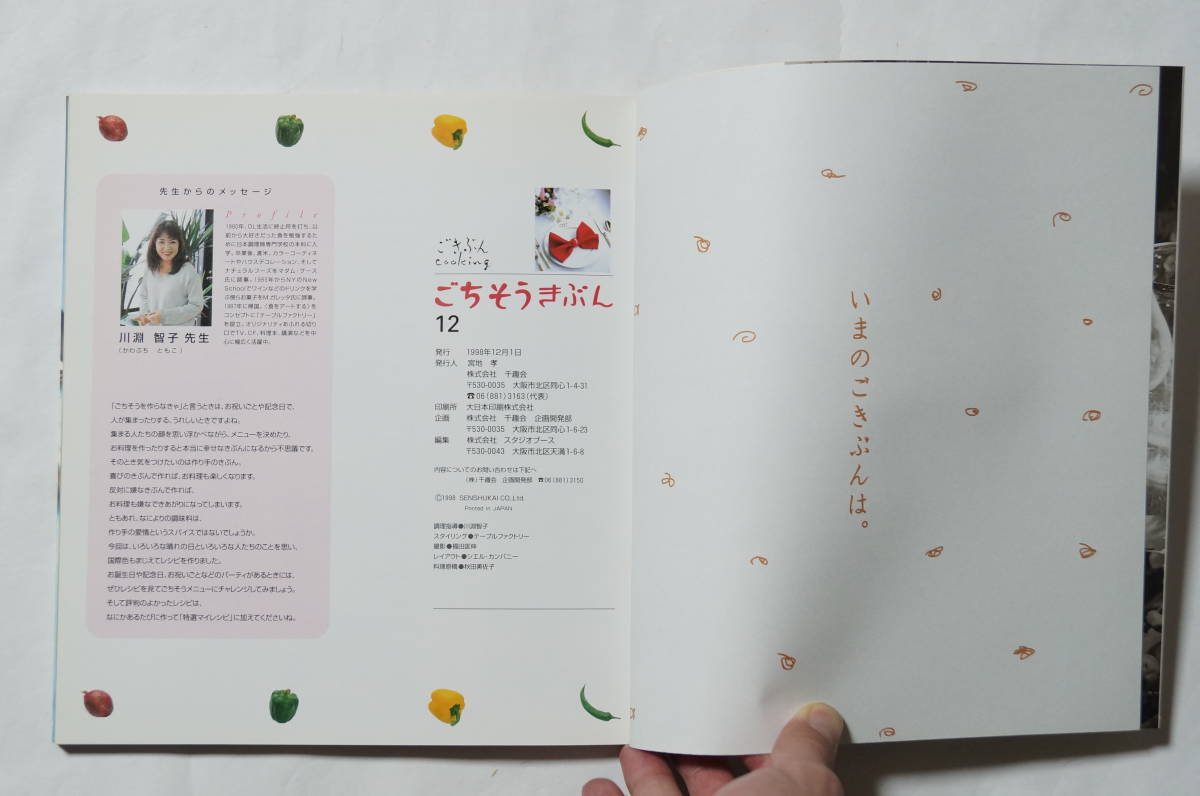 先生からのメッセージ
Profile
1980年、OL生活に終止符を打ち、以
前から大好きだった食を勉強するた
めに日本調理師専門学校の本科に入
学。卒業後、渡米。カラーコーディネ
ートやハウスデコレーション、そして
ナチュラルフーズをマダム・ブース
氏に師事。1985年からNYのNew
Schoolでワインなどのドリンクを学
ぶ傍らお菓子をM.ガレッタ氏に師事。
1987年に帰国。〈食をアートする〉を
コンセプトに「テーブルファクトリー」
を設立。オリジナリティあふれる切り
口でTV、CF、料理本、講演などを中
心に幅広く活躍中。
川淵 智子 先生
(かわぶち ともこ)
「ごちそうを作らなきゃ」と言うときは、お祝いごとや記念日で、
人が集まったりする、うれしいときですよね。
集まる人たちの顔を思い浮かべながら、メニューを決めたり、
お料理を作ったりすると本当に幸せなきぶんになるから不思議です。
そのとき気をつけたいのは作り手のきぶん。
喜びのきぶんで作れば、お料理も楽しくなります。
反対に嫌なきぶんで作れば、
お料理も嫌なできあがりになってしまいます。
ともあれ、なによりの調味料は、
作り手の愛情というスパイスではないでしょうか。
今回は、いろいろな晴れの日といろいろな人たちのことを思い、
国際色もまじえてレシピを作りました。
お誕生日や記念日、お祝いごとなどのパーティがあるときには、
ぜひレシピを見てごちそうメニューにチャレンジしてみましょう。
そして評判のよかったレシピは、
なにかあるたびに作って「特選マイレシピ」に加えてくださいね。
ごきぶん
cooking
ごちそうきぶん
12
発行 1998年12月1日
発行人 宮地 孝
株式会社 千趣会
〒530-0035 大阪市北区同心1-4-31
☎06(881)3163(代表)
印刷所 大日本印刷株式会社
企画 株式会社 千趣会 企画開発部
〒530-0035 大阪市北区同心1-6-23
編集 株式会社 スタジオブース
〒530-0043 大阪市北区天満1-6-8
内容についてのお問い合わせは下記へ
(株)千趣会 企画開発部 ☎06(881)3150
©1998 SENSHUKAI CO.,Ltd.
Printed in JAPAN
調理指導●川淵智子
スタイリング●テーブルファクトリー
撮影●福田匡伸
レイアウト●シエル・カンパニー
料理原稿●秋田美佐子
いまのごきぶんは。